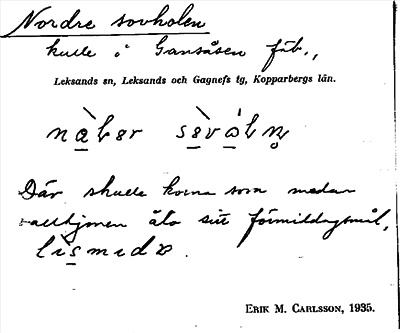 Nordre sovholen
kulle i Gansåsen fäb.,
Leksands sn, Leksands och Gagnefs tg, Kopparbergs län.
Där skulle korna som medan
vallhjonen äto sitt förmiddagsmål,
ERIK M. CARLSSON, 1935.